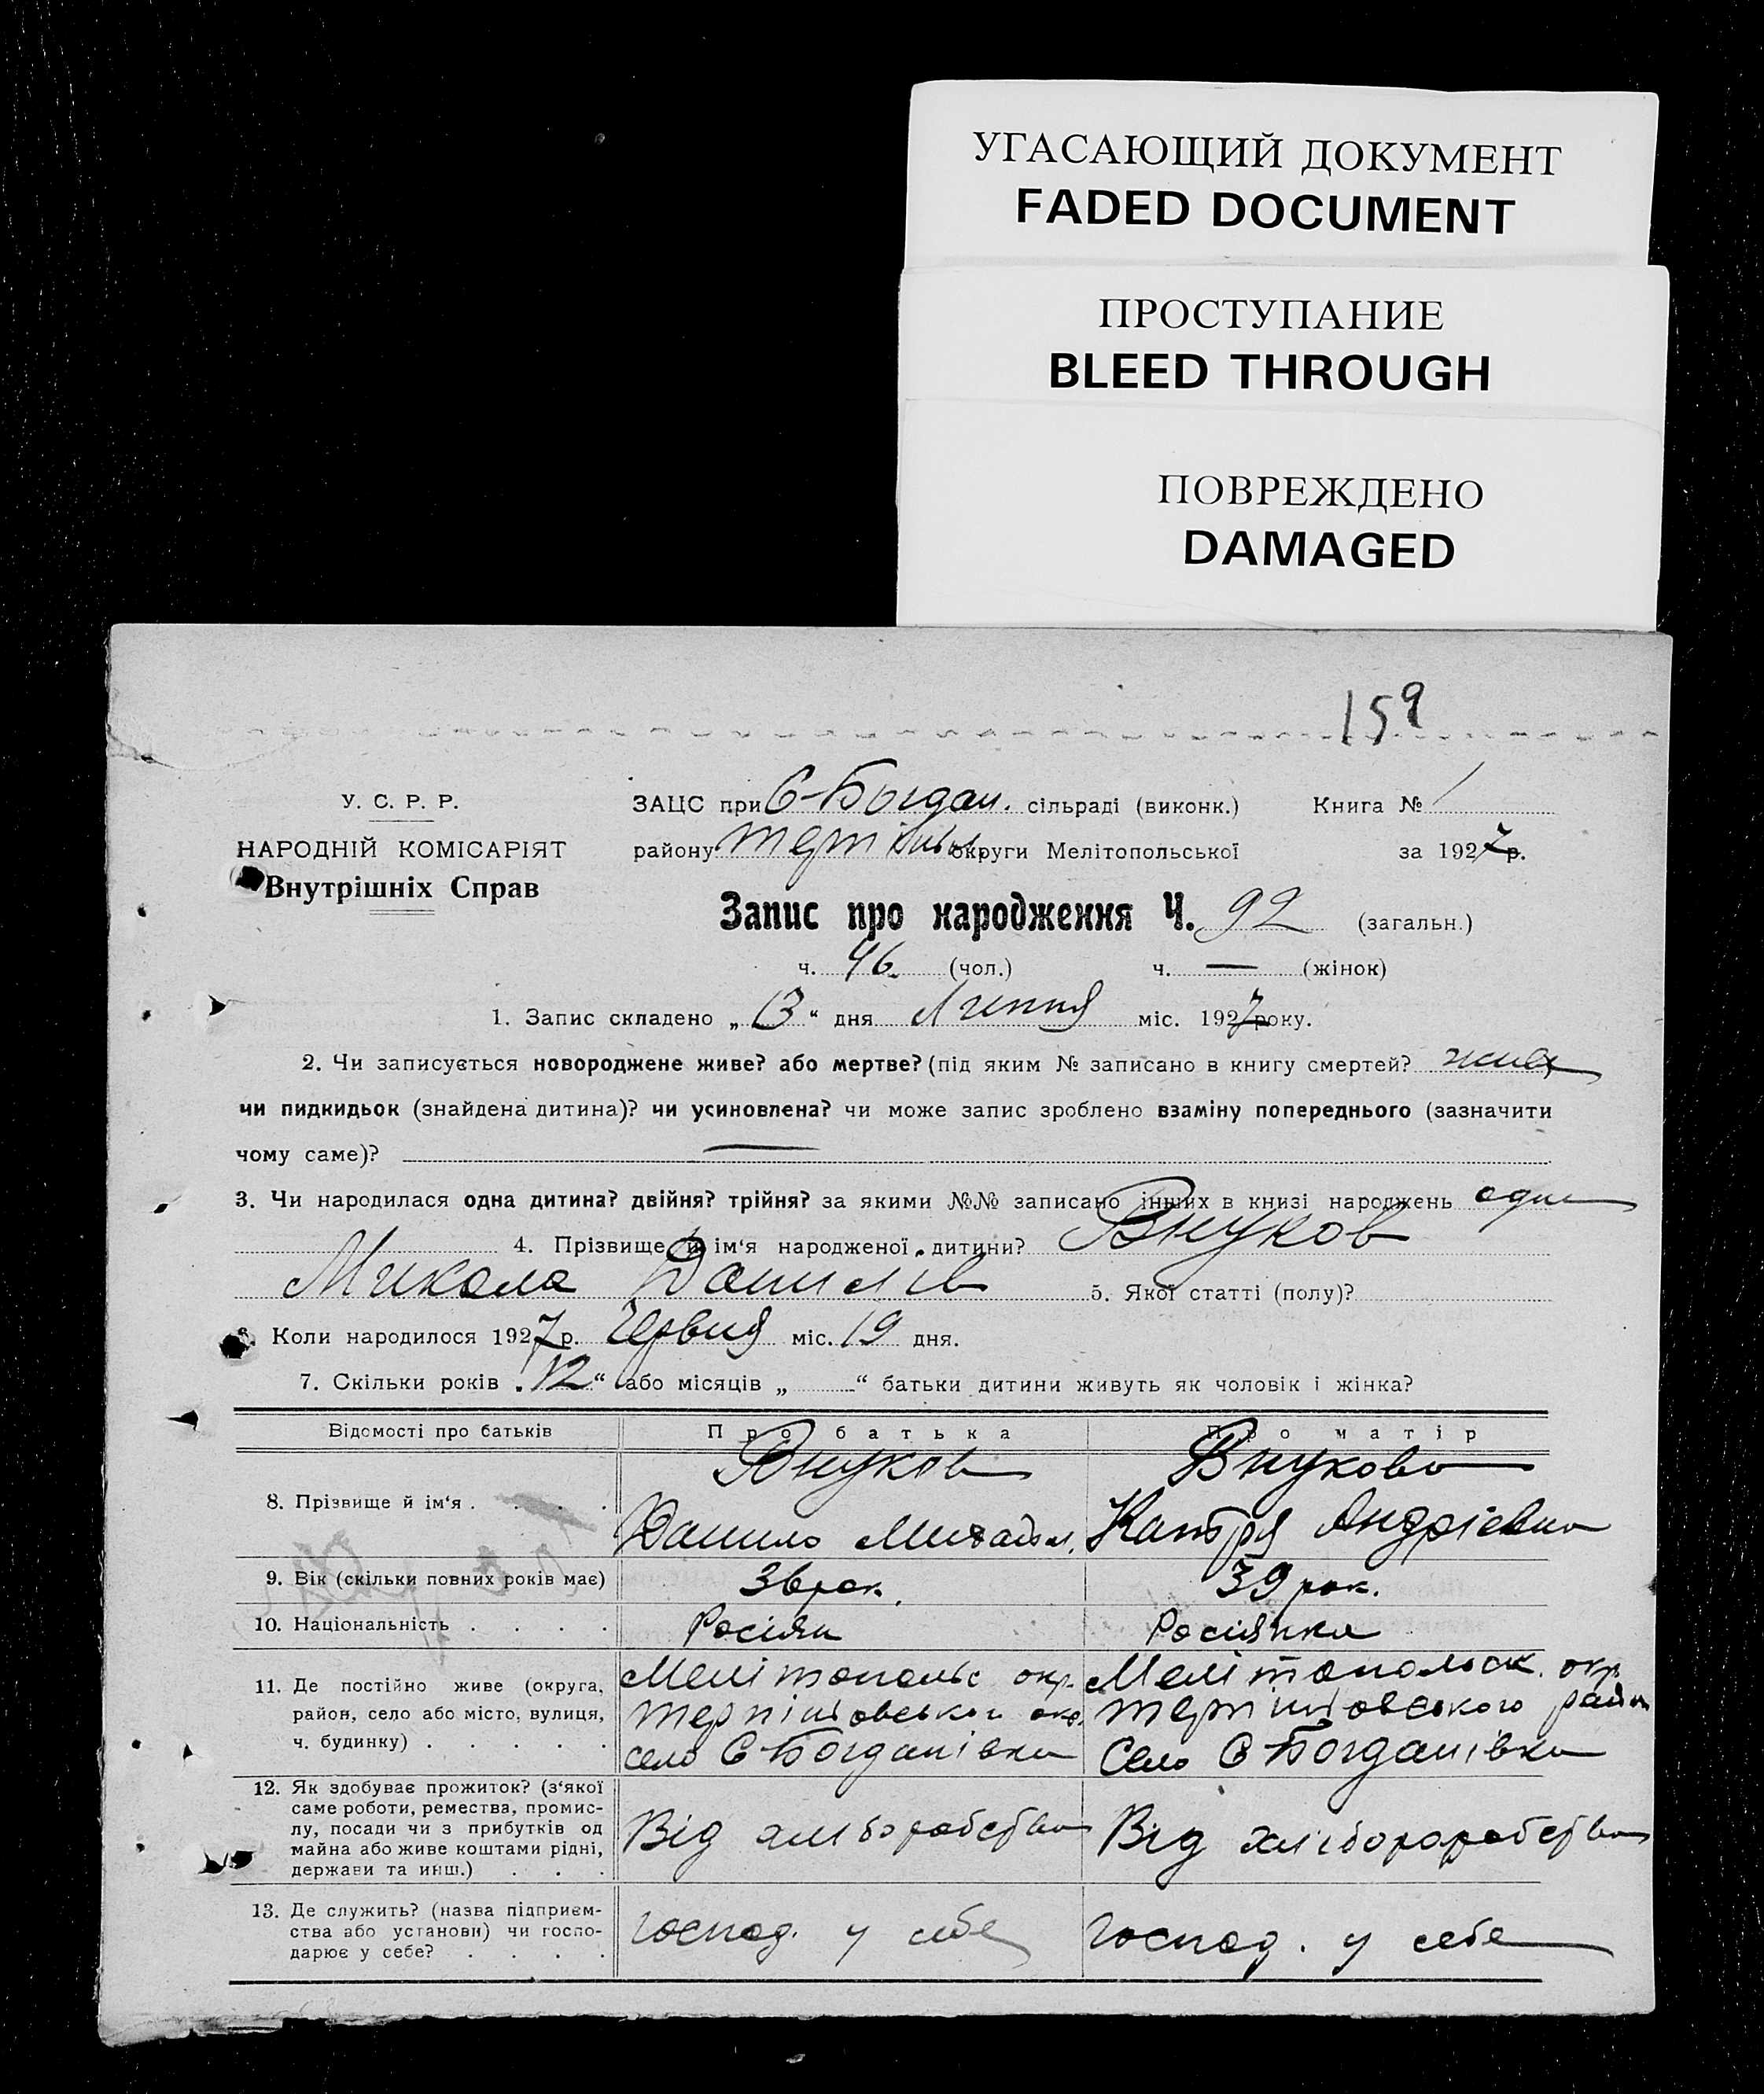 УГАСАЮЩИЙ ДОКУМЕНТ
FADED DOCUMENT
ПРОСТУПАНИЕ
BLEED THROUGH
ПОВРЕЖДЕНО
DAMAGED
159
У. С. Р. Р.
НАРОДНІЙ КОМІСАРІЯТ
Внутрішніх Справ
ЗАЦС при Є-Богдан. сільраді (виконк.) Книга № 1
району округи Мелітопольської за 1927 р.
Запис про народження Ч. 92 (загальн.)
ч. 46. (чол.) ч. — (жінок)
1. Запис складено „ 13 “ дня Липня міс. 1927 року.
2. Чи записується новороджене живе? або мертве? (під яким № записано в книгу смертей? живе
чи пидкидьок (знайдена дитина)? чи усиновлена? чи може запис зроблено взаміну попереднього (зазначити
чому саме)? —
3. Чи народилася одна дитина? двійня? трійня? за якими №№ записано інших в книзі народжень
4. Прізвище й ім‘я народженої дитини? Внуков
Микола Данилів 5. Якої статті (полу)?
6. Коли народилося 1927 р. Червня міс. 19 дня.
7. Скільки років „ 12 “ або місяців „ “ батьки дитини живуть як чоловік і жінка?
Відомості про батьків Про батька Про матір
8. Прізвище й ім‘я . . . . Внуков Внукова
Данило Михайл. Катря Андрієвна
9. Вік (скільки повних років має) 36 рок. 39 рок.
10. Національність . . . . Росіян Росіянка
11. Де постійно живе (округа, Мелітопольс окр. Мелітопольськ. окр.
район, село або місто, вулиця, Терпініовського району
ч. будинку) . . . . . село Є-Богданівка Село Є-Богданівка
12. Як здобуває прожиток? (з‘якої
саме роботи, ремества, промис-
лу, посади чи з прибутків од
майна або живе коштами рідні,
держави та инш.) . . .
Від хліборобства Від хліборобства
13. Де служить? (назва підприєм-
ства або установи) чи госпо-
дарює у себе? . . . .
Господ. у себе Господ. у себе